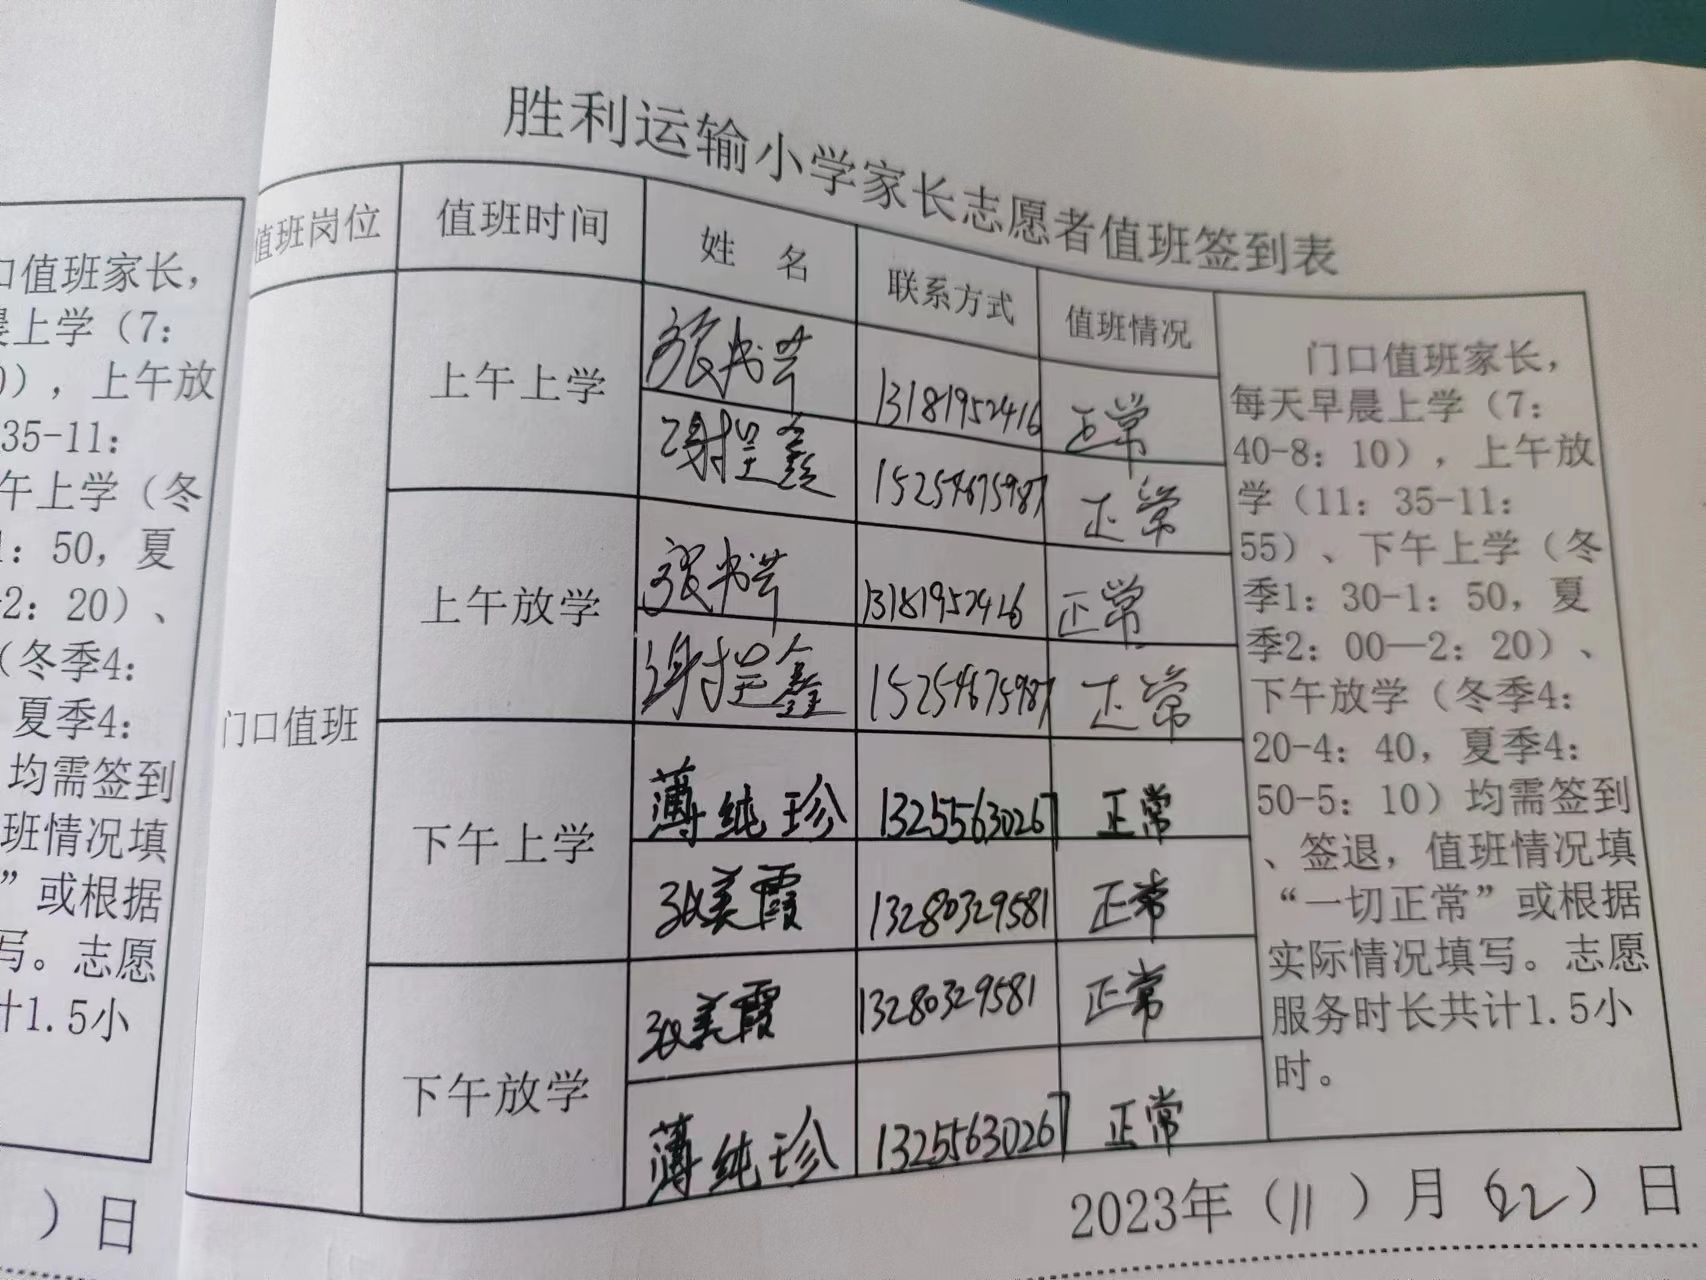 胜利运输小学家长志愿者值班签到表
值班岗位 值班时间 姓 名 联系方式 值班情况
门口值班
上午上学
张书芳 13181952416 正常
谢提鑫 15254675987 正常
上午放学
张书芳 13181952416 正常
谢提鑫 15254675987 正常
下午上学
薄纯珍 13255630267 正常
张美霞 13280329581 正常
下午放学
张美霞 13280329581 正常
薄纯珍 13255630267 正常
门口值班家长，
每天早晨上学（7：
40-8：10），上午放
学（11：35-11：
55）、下午上学（冬
季1：30-1：50，夏
季2：00—2：20）、
下午放学（冬季4：
20-4：40，夏季4：
50-5：10）均需签到
、签退，值班情况填
“一切正常”或根据
实际情况填写。志愿
服务时长共计1.5小
时。
2023年（11）月（22）日
口值班家长，
晨上学（7：
0），上午放
35-11：
午上学（冬
1：50，夏
-2：20）、
（冬季4：
夏季4：
均需签到
班情况填
”或根据
写。志愿
计1.5小
）日